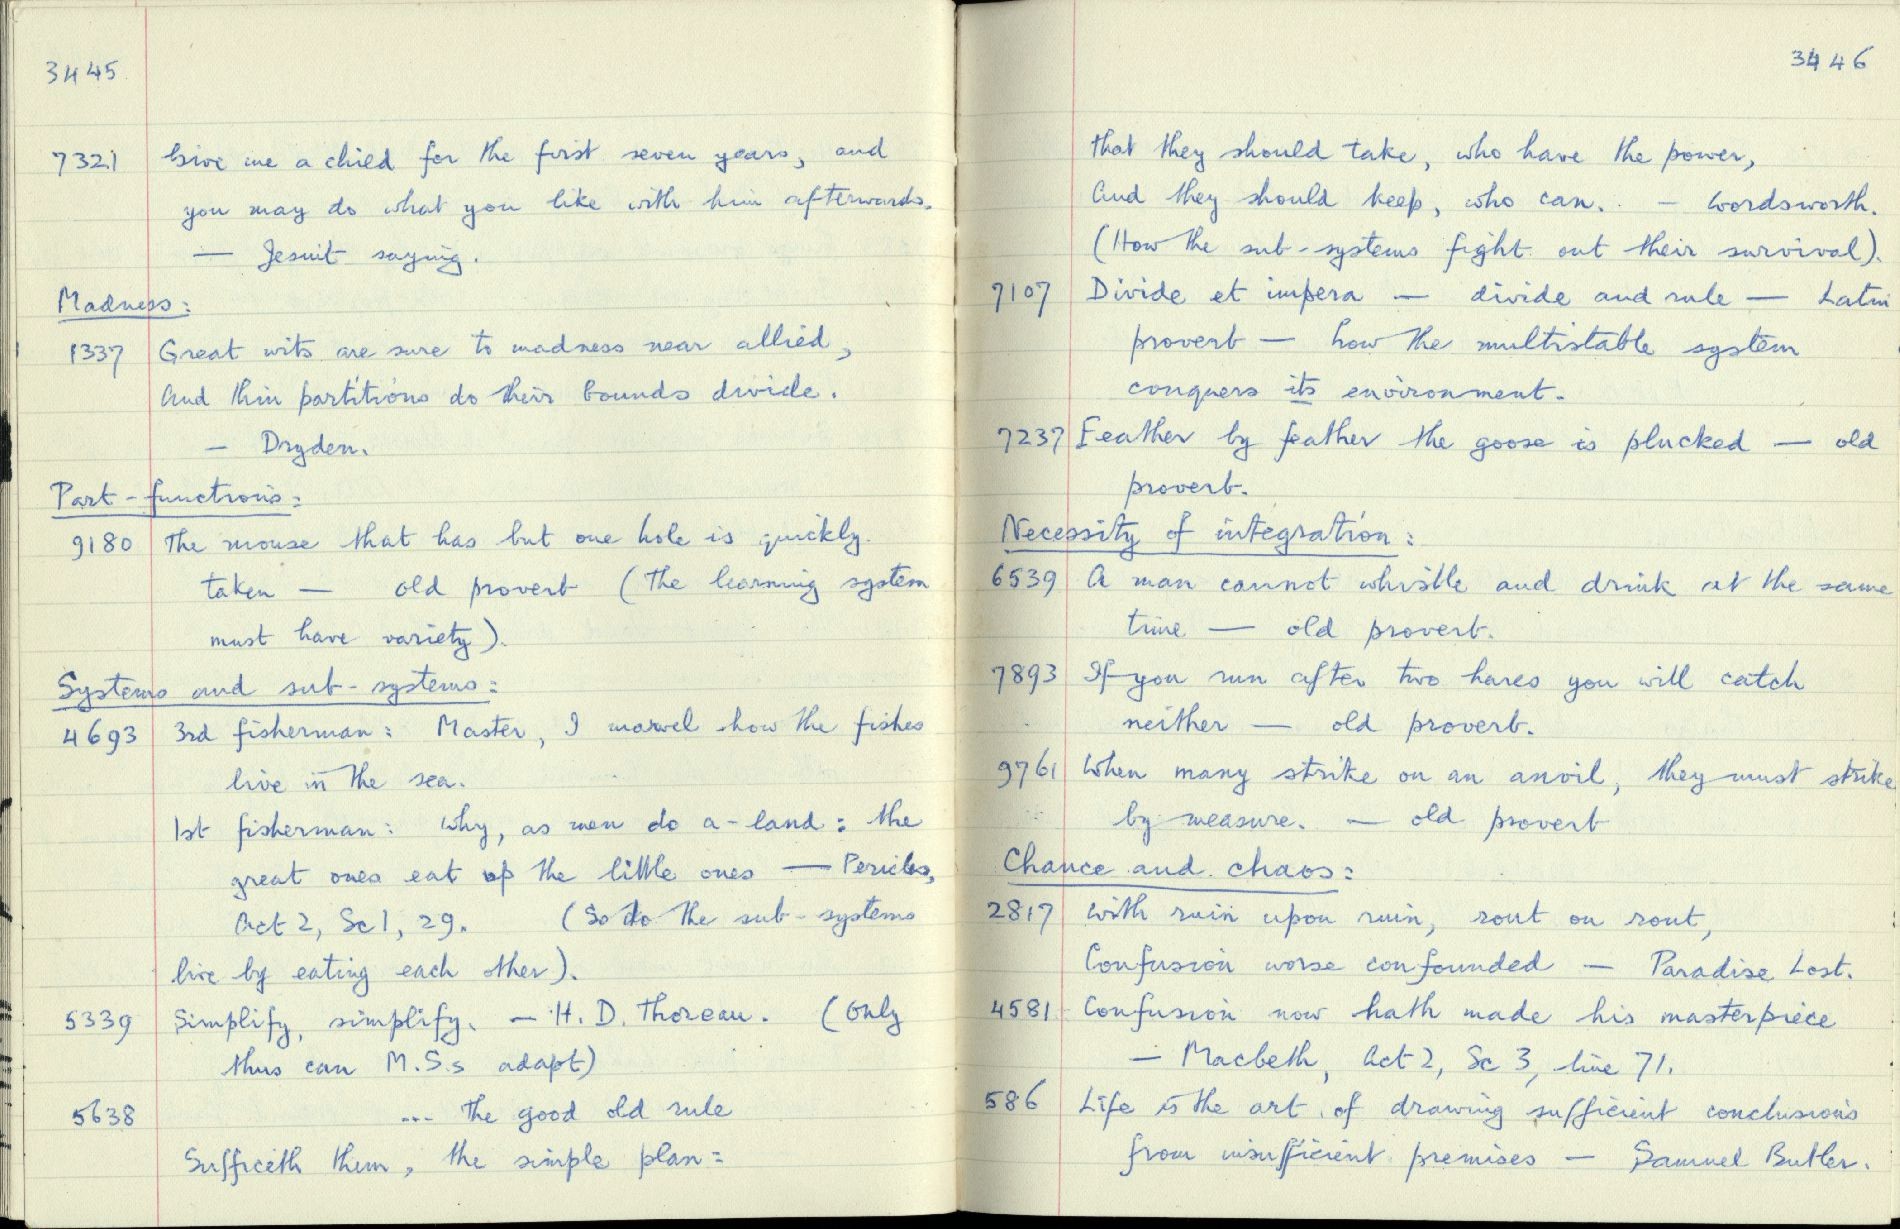 3445
7321 Give me a child for the first seven years, and
you may do what you like with him afterwards.
— Jesuit saying.
Madness:
1337 Great wits are sure to madness near allied,
And thin partitions do their bounds divide.
— Dryden.
Part-functions:
9180 The mouse that has but one hole is quickly
taken — old proverb (The learning system
must have variety).
Systems and sub-systems:
4693 3rd fisherman: Master, I marvel how the fishes
live in the sea.
1st fisherman: Why, as men do a-land: the
great ones eat up the little ones — Pericles,
Act 2, Sc 1, 29. (So do the sub-systems
live by eating each other).
5339 Simplify, simplify. — H. D. Thoreau. (Only
thus can M.S.s adapt)
5638 ... the good old rule
Sufficeth them, the simple plan:
3446
That they should take, who have the power,
And they should keep, who can. — Wordsworth.
(How the sub-systems fight out their survival).
7107 Divide et impera — divide and rule — Latin
proverb — how the multistable system
conquers its environment.
7237 Feather by feather the goose is plucked — old
proverb.
Necessity of integration:
6539 A man cannot whistle and drink at the same
time — old proverb.
7893 If you run after two hares you will catch
neither — old proverb.
9761 When many strike on an anvil, they must strike
by measure. — old proverb
Chance and chaos:
2817 With ruin upon ruin, rout on rout,
Confusion worse confounded — Paradise Lost.
4581 Confusion now hath made his masterpiece
— Macbeth, Act 2, Sc 3, line 71.
586 Life is the art of drawing sufficient conclusions
from insufficient premises — Samuel Butler.